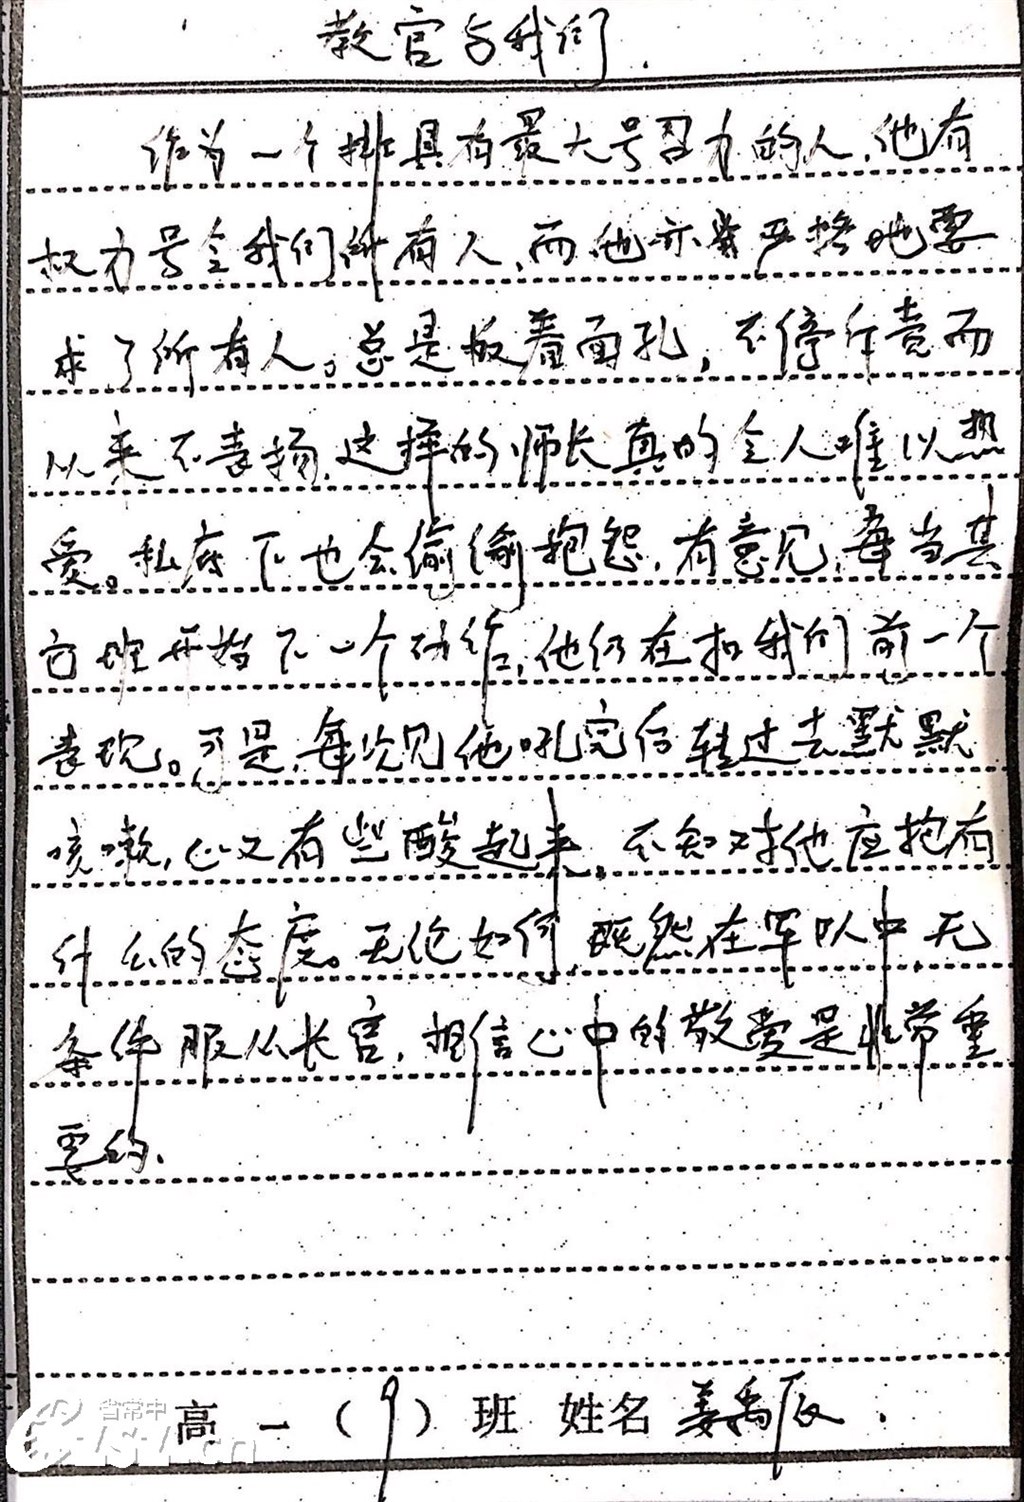 教官与我们.
作为一个排具有最大号召力的人,他有
权力号令我们所有人,而他亦常严格地要
求了所有人。总是板着面孔,不停斥责而
从来不表扬,这样的师长真的令人难以热
爱。私底下也会偷偷抱怨,有意见,每当其
它班开始下一个动作,他仍在扣我们前一个
表现。可是,每次见他吼完后转过去默默
咳嗽,心又有些酸起来,不知对他应抱有
什么的态度。无论如何,既然在军队中,无
条件服从长官,相信心中的敬爱是非常重
要的.
高一(9)班 姓名 姜禹辰.
省常中